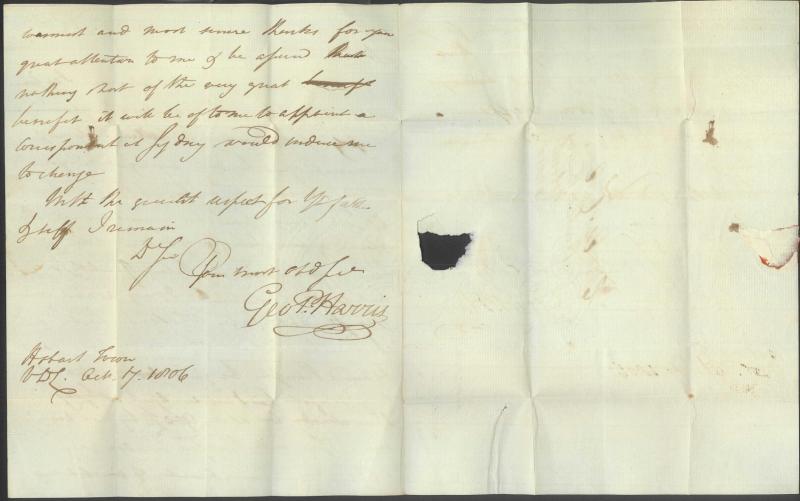 warmest and most sincere thanks for your
great attention to me & be assured that
nothing short of the very great benefit
benefit it will be of to me to appoint a
correspondent at Sydney would induce me
to change
With the greatest respect for
I remain
Dr Sir
Your most Obd Ser
Geo P. Harris
Hobart Town
V.D.L. Oct. 17. 1806